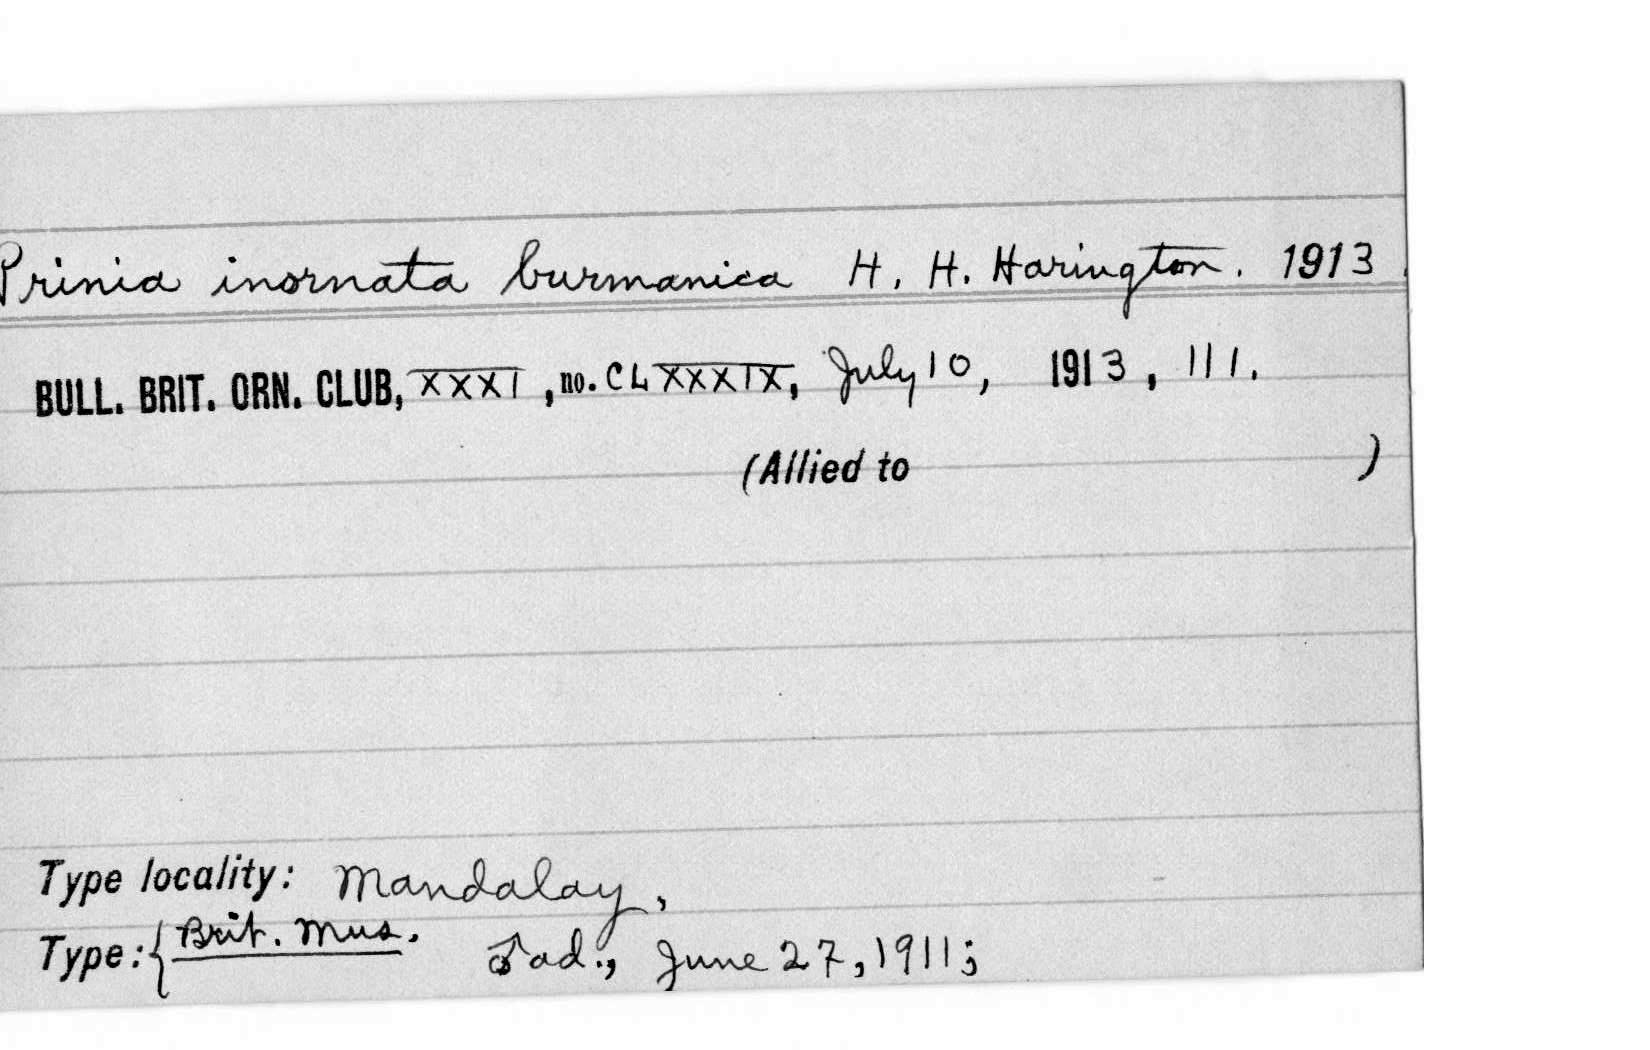 Prinia inornata burmanica H. H. Harington. 1913.
BULL. BRIT. ORN. CLUB, XXXI, no. CLXXXIX, July 10, 1913, 111.
(Allied to )
Type locality: Mandalay,
Type: { Brit. Mus. ♂ ad., June 27, 1911;